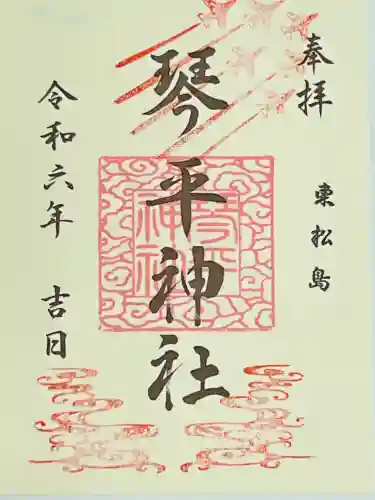 奉拝
東松島
琴平神社
琴平
神社
令和六年 吉日